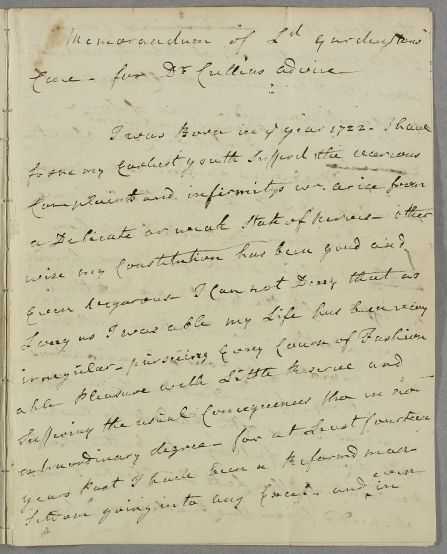 Memorandum of Ld Gardenston's
Case - for Dr Cullins advice
I was Born in ye year 1722 - I have
from my Earliest youth Suffered the various
Complaints and infirmitys wc arise from
a Delicate or weak State of nerves - other
wise my Constitution has been good and
Even vigorous - I can not Deny that as
Long as I was able my Life has been very
irregular - pursuing Every Course of Fashion
able Pleasure with Little Reserve and
Suffering the usual Consequences tho in no
extraordinary degree - for at Least fourteen
years Past I have been a Reformed man
Seldom going into any Excess - and even in